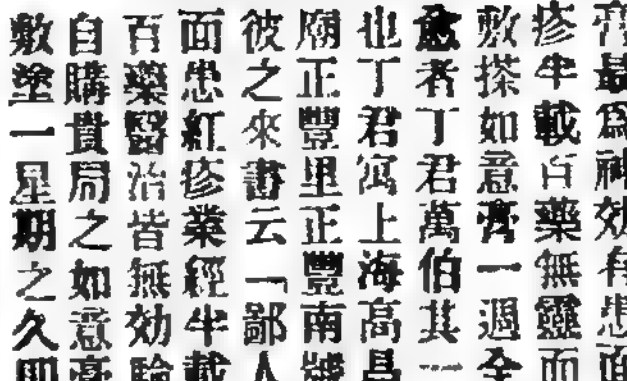 膏最爲神効有患面
疹半載百藥無靈而
敷搽如意膏一週全
愈者丁君萬伯其一
也丁君寓上海高昌
廟正豐里正豐南號
彼之來書云「鄙人
面患紅疹業經半載
百藥醫治皆無効驗
自購貴局之如意膏
敷塗一星期之久即